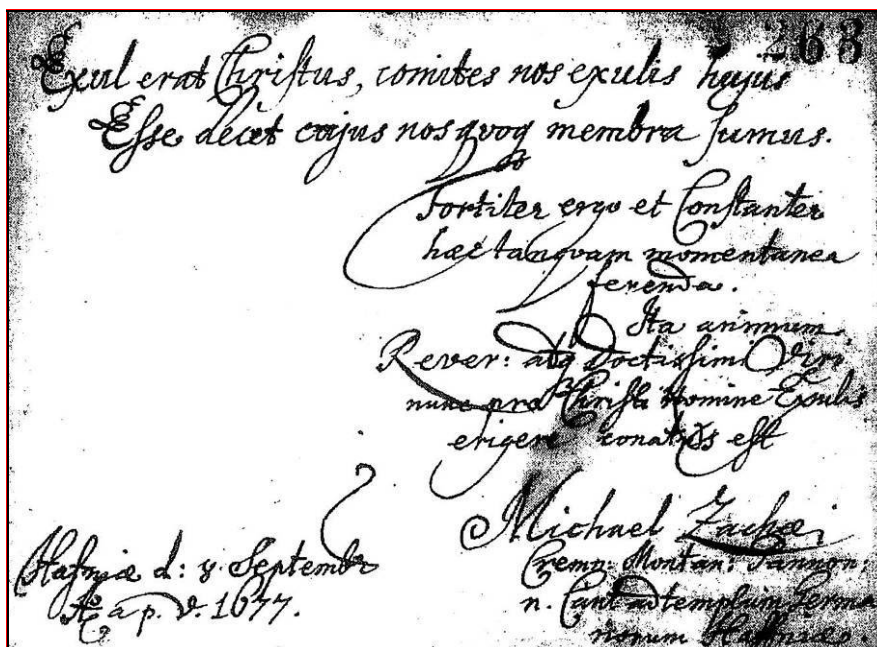 268
Exul erat Christus, comites nos exulis hujus
Esse decet cujus nos qvoq membra sumus.
Fortiter ergo et Constanter
haec tanqvam momentanea
ferenda.
Ita animum
Rever: atq Doctissimi Viri
nunc pro Christi Nomine Exulis
erigere conatus est
Michael Zachaei
Cremn: Montan: Pannon:
n. Cant ad templum Germa
norum Haffniae.
Hafniae d: 8. Septembr
Ao a p. V. 1677.